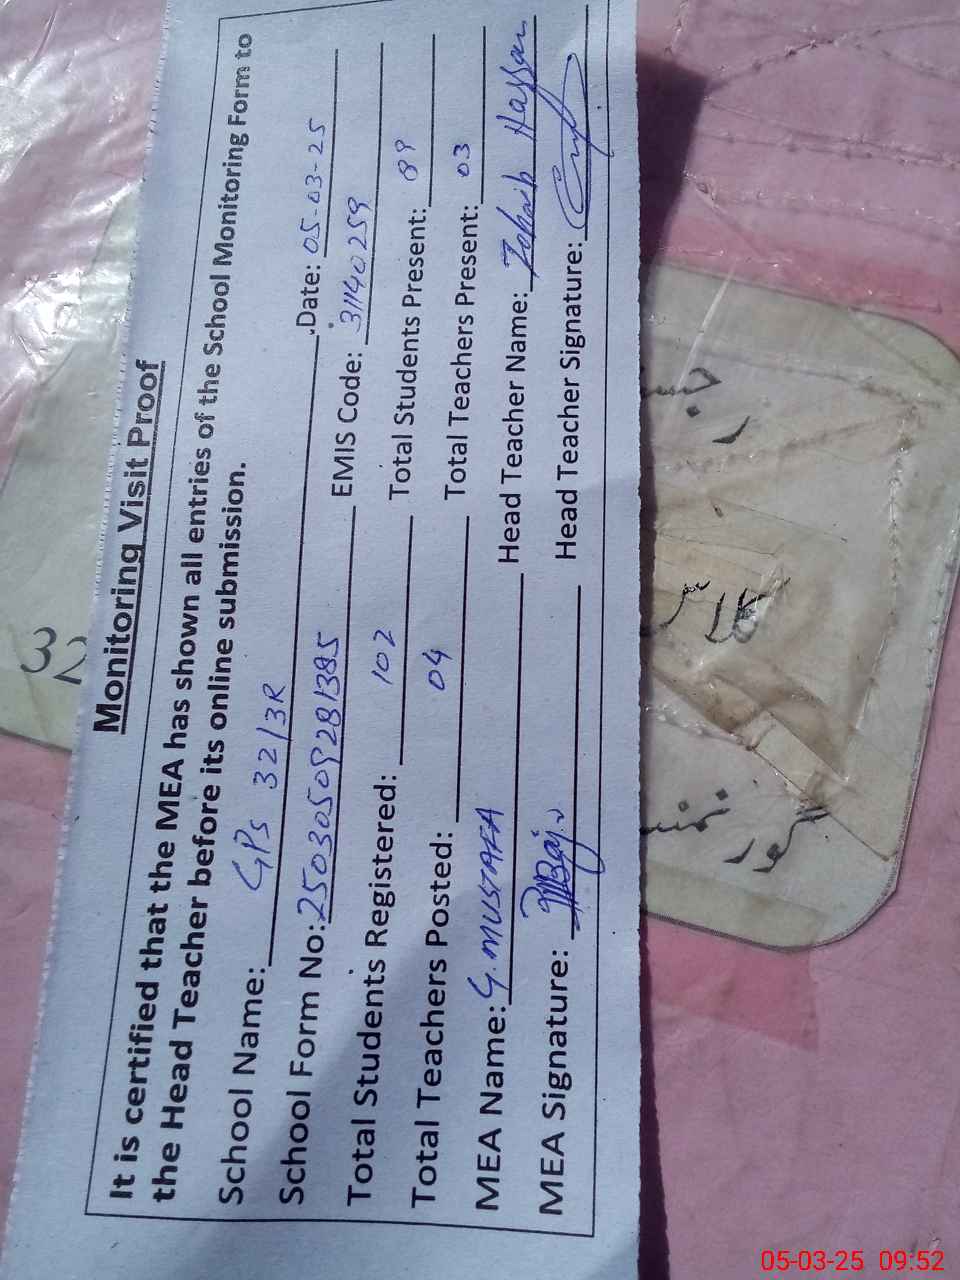 Monitoring Visit Proof
It is certified that the MEA has shown all entries of the School Monitoring Form to
the Head Teacher before its online submission.
School Name: GPS 32/3R Date: 05-03-25
School Form No: EMIS Code: 31140259
Total Students Registered: 102 Total Students Present: 89
Total Teachers Posted: 04 Total Teachers Present: 03
MEA Name: G. MUSTAFA Head Teacher Name: Zohaib Hassan
MEA Signature: Head Teacher Signature:
32
کلاس
گورنمنٹ
05-03-25 09:52